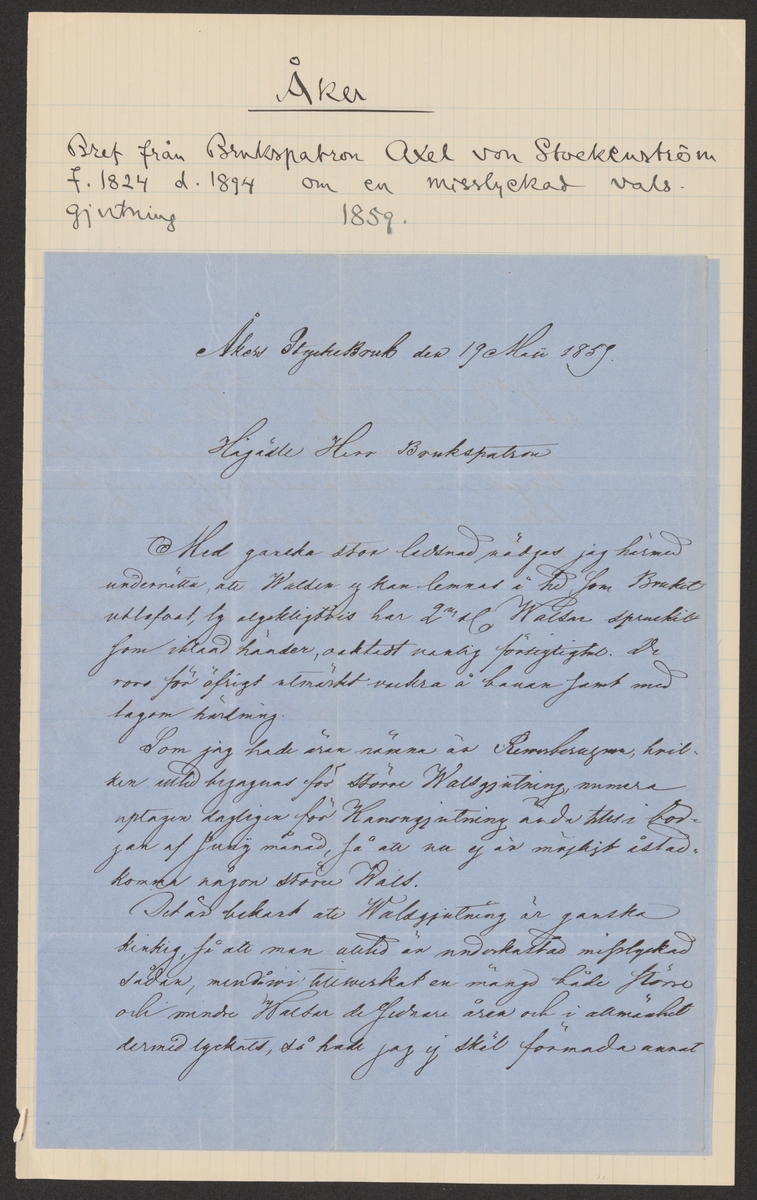 Åker
Bref från Brukspatron Axel von Stockenström
f. 1824 d. 1894 om en misslyckad vals-
gjutning 1859.
Åkers StyckeBruk den 19 Maii 1859.
Högädle Herr Brukspatron
Med ganska stor ledsnad nödgas jag härmed
underrätta, att Walsen ej kan lemnas å tid, som Bruket
utlofvat, ty olyckligtvis har 2ne Walsar spruckit
som ibland händer, oaktadt vanlig försigtighet. De
voro för öfrigt utmärkt vackra å banan samt med
lagom härdning.
Som jag hade äran nämna är Reverberugnen, hvil-
ken alltid begagnas för större Walsgjutning, numera
uptagen dagligen för Kanongjutning ända till i bör-
jan af Junij månad, så att nu ej är möjligt åstad-
komma någon större Wals.
Det är bekant att Walsgjutning är ganska
kinkig, så att man alltid är underkastad misslyckad
sådan, men då vi tillverkat en mängd både större
och mindre Walsar de sednare åren och i allmänhet
dermed lyckats, så hade jag ej skäl förmoda annat